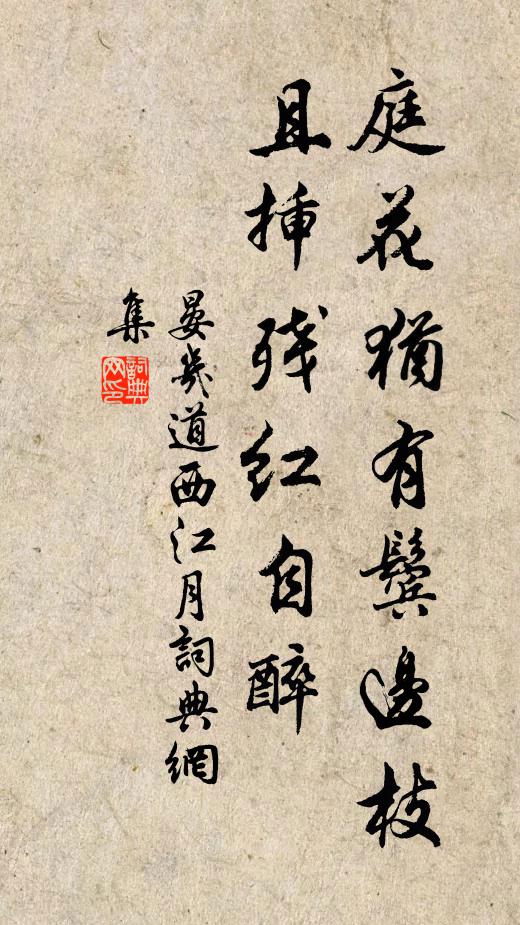 庭花猶有鬓邊枝
且挿残红自醉
晏幾道西江月詞典網
集
詞典网印